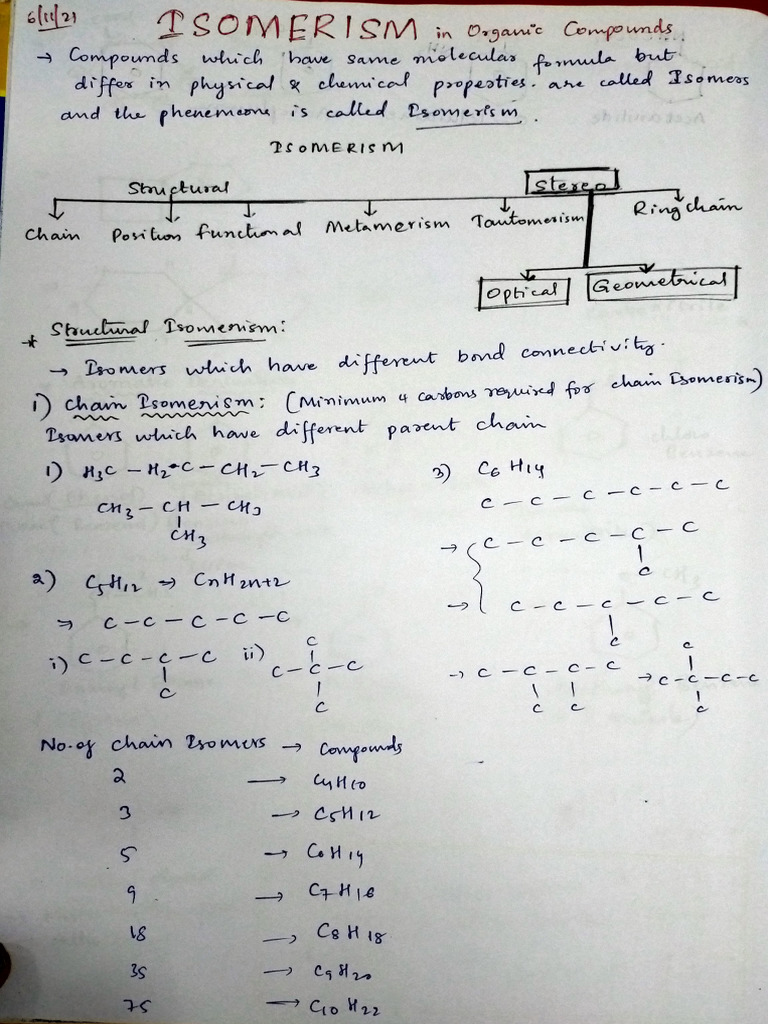 6/11/21
ISOMERISM in Organic Compounds
→ Compounds which have same molecular formula but
differ in physical & chemical properties. are called Isomers
and the phenemeone is called Isomerism.
ISOMERISM
Structural Stereo
Chain Position functional Metamerism Tautomerism Ring chain
Optical Geometrical
* Structural Isomerism:
→ Isomers which have different bond connectivity.
i) Chain Isomerism: (Minimum 4 carbons required for chain Isomerism)
Isomers which have different parent chain
1) H3C – H2C – CH2 – CH3
CH3 – CH – CH3
CH3
2) C5H12 → CnH2n+2
⇒ C – C – C – C – C
i) C – C – C – C
C
ii) C
C – C – C
C
3) C6H14
C – C – C – C – C – C
→ C – C – C – C – C
C
→ C – C – C – C – C
C
→ C – C – C – C
C C
→ C
C – C – C – C
C
No. of chain Isomers → Compounds
2 → C4H10
3 → C5H12
5 → C6H14
9 → C7H16
18 → C8H18
35 → C9H20
75 → C10H22